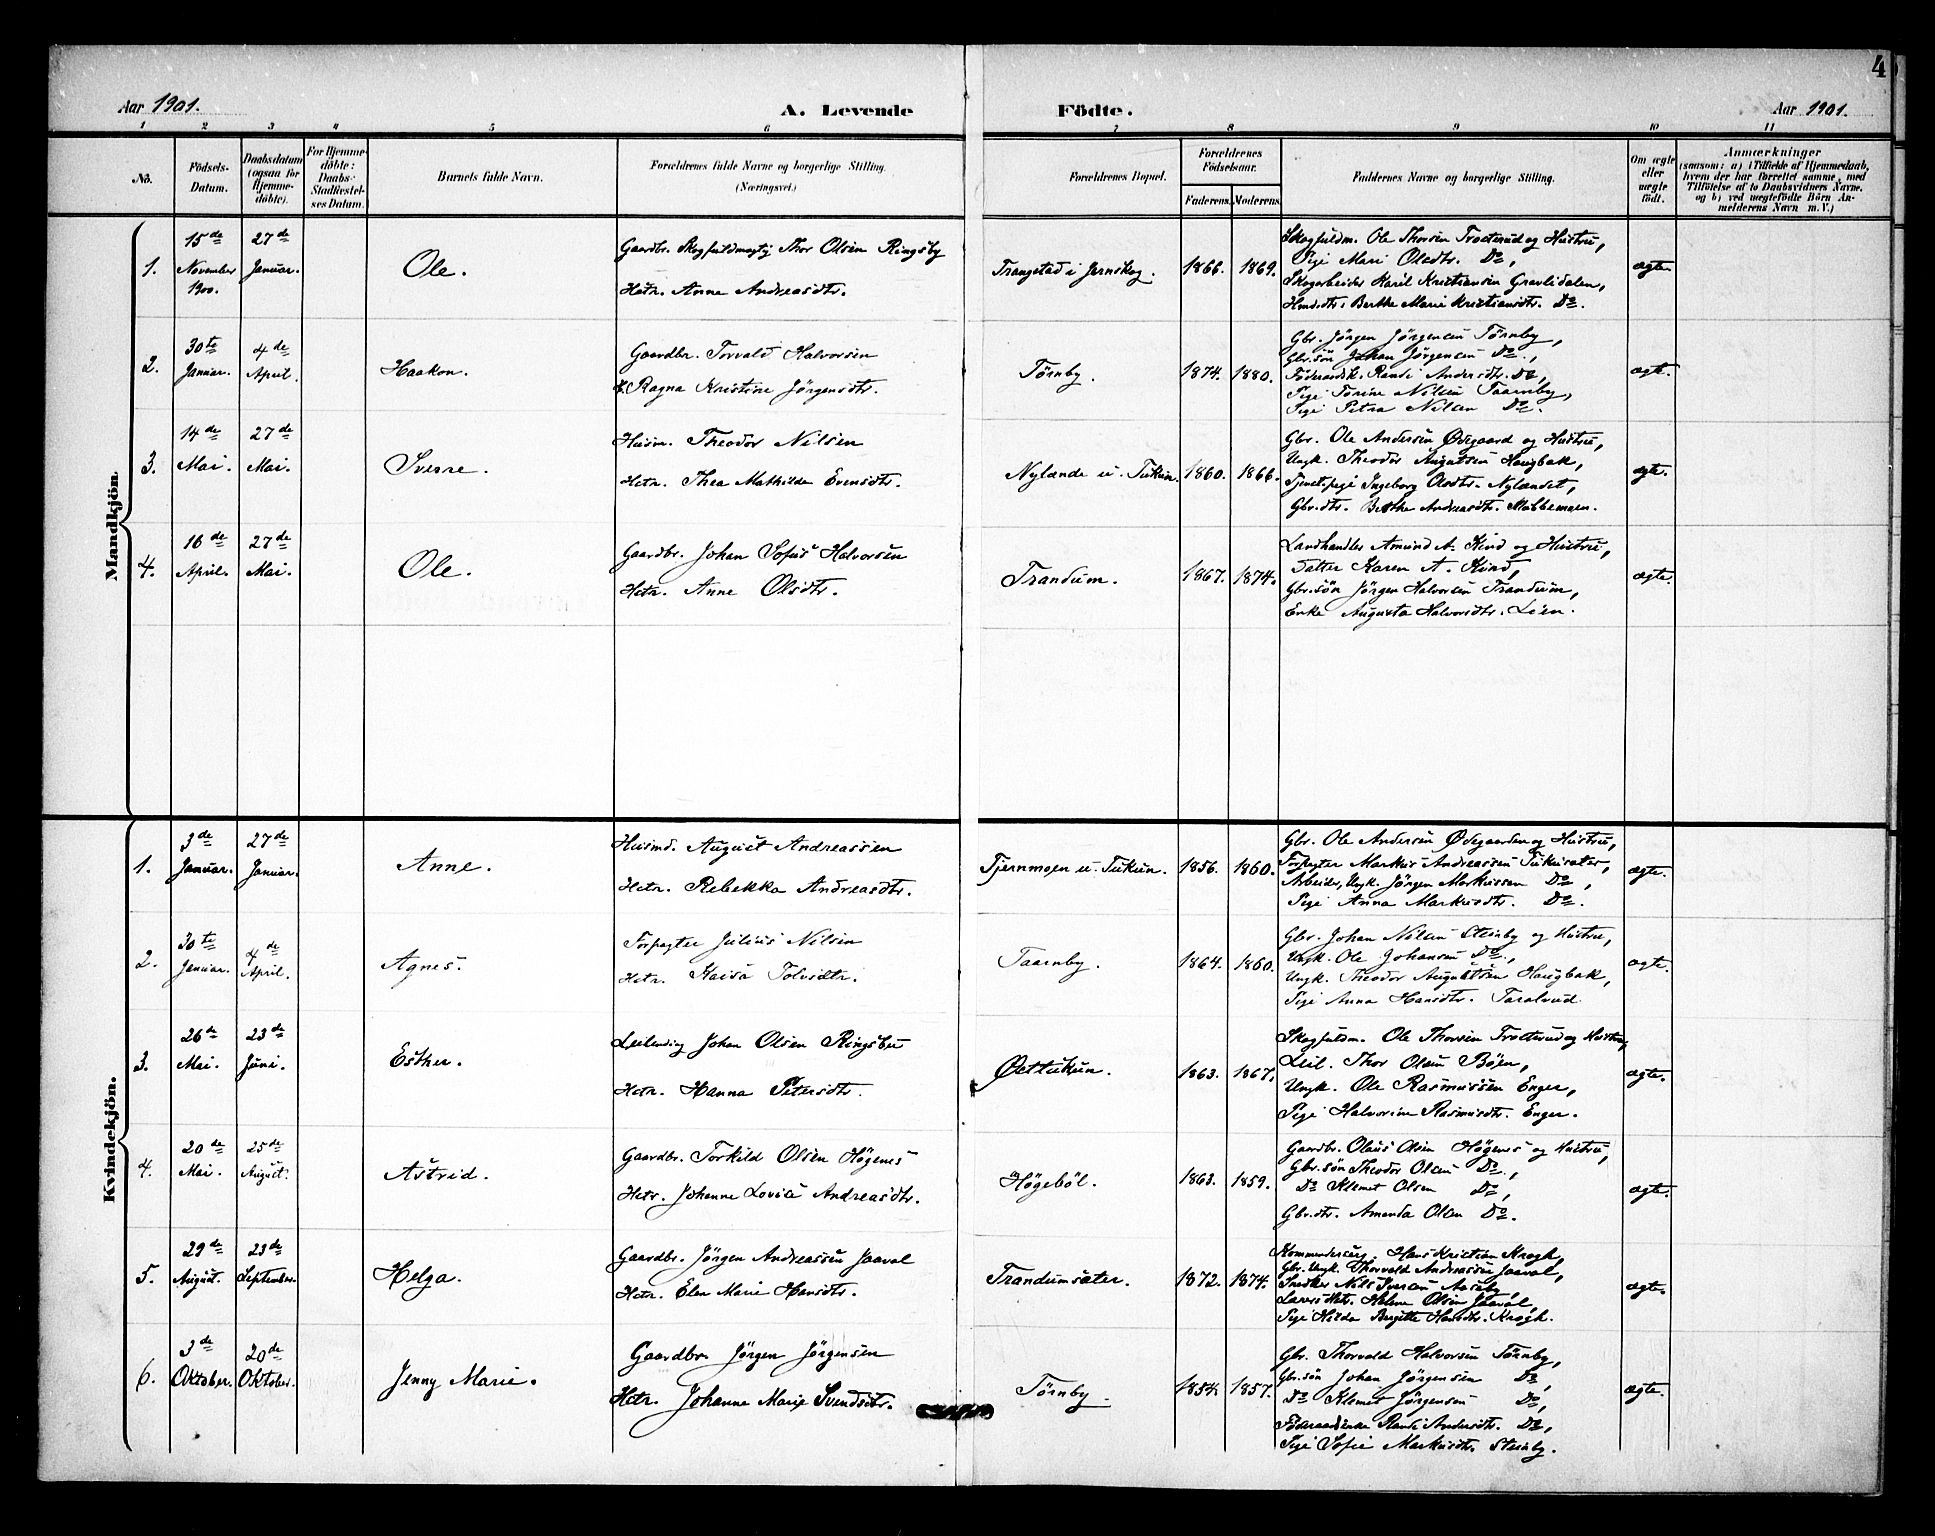 4
Aar 1901. A. Levende Födte. Aar 1901.
1 2 3 4 5 6 7 8 9 10 11
No. Födsels-Datum. Daabsdatum (ogsaa for Hjemmedöbte). For Hjemmedöbte: Daabs-Stadfæstelses Datum. Barnets fulde Navn. Forældrenes fulde Navne og borgerlige Stilling. (Næringsvei.) Forældrenes Bopæl. Forældrenes Födselsaar. Faderens. Moderens. Faddernes Navne og borgerlige Stilling. Om ægte eller uægte födt. Anmærkninger
(saasom: a) i Tilfælde af Hjemmedaab, hvem der har forrettet samme, med Tilföielse af to Daabsvidners Navne, og b) ved uægtefödte Börn Anmelderens Navn m. V.)
Mandkjön
1. 15de November 1900. 27de Januar. Ole.
Gaardbr. Skogfuldmægtig Thor Olsen Ringsby
Hstr. Anne Andreasdtr.
Trangstad i Jernskog. 1866. 1869.
Skogfuldm. Ole Thorsen Trætterud og Hustru,
Pige Mari Olsdtr. Do,
Skogarbeider Karil Kristiansen Gravlidalen,
Hmdsdtr. Berthe Marie Kristiansdtr. Do.
ægte.
2. 30te Januar. 4de April. Haakon.
Gaardbr. Torvald Halvorsen
H. Ragna Kristine Jörgensdtr.
Törnby. 1874. 1880.
Gbr. Jörgen Jörgensen Törnby,
Gbr.sön Johan Jörgensen Do.,
Föderaadsk. Randi Andersdtr. Do,
Pige Torine Nilsen Taarnby,
Pige Petra Nilsen Do.
ægte.
3. 14de Mai. 27de Mai. Sverre.
Husm. Theodor Nilsen
Hstr. Thea Mathilde Evensdtr.
Nylænde u. Tukun. 1860. 1866.
Gbr. Ole Andersen Ødegaard og Hustru,
Ungk. Theodor Augustsen Haugbak,
Tjenst.pige Ingeborg Olsdtr. Nylændet,
Gbr.dtr. Berthe Andreasdtr. Mabbemoen.
ægte.
4. 16de April. 27de Mai. Ole.
Gaardbr. Johan Sofus Halvorsen
Hstr. Anne Olsdtr.
Trandum. 1867. 1874.
Landhandler Amund A. Kind og Hustru,
Datter Karen A. Kind,
Gbr.sön Jörgen Halvorsen Trandum,
Enke Augusta Halvorsdtr. Lien.
ægte.
Kvindekjön.
1. 3de Januar. 27de Januar. Anne.
Husmd. August Andreassen
Hstr. Rebekka Andreasdtr.
Tjernmoen u. Tukun. 1856. 1860.
Gbr. Ole Andersen Ødegaarden og Hustru,
Forpagter Markus Andreassen Tukusæter,
Arbeider, Ungk. Jörgen Markussen Do,
Pige Anna Markusdtr. Do.
ægte.
2. 30te Januar. 4de April. Agnes.
Forpagter Julius Nilsen
Hstr. Kaisa Tolvsdtr.
Taarnby. 1864. 1860.
Gbr. Johan Nilsen Stenby og Hustru,
Ungk. Ole Johansen Do.,
Ungk. Theodor Augustsen Haugbak,
Pige Anna Hansdtr. Taralrud.
ægte.
3. 26de Mai. 23de Juni. Esther.
Leilending Johan Olsen Ringsbu
Hstr. Hanna Petersdtr.
Østtukun. 1863. 1867.
Skogfuldm. Ole Thorsen Trætterud og Hustru,
Leil. Thor Olsen Böen,
Ungk. Ole Rasmussen Enger,
Pige Halvorine Rasmusdtr. Enger.
ægte.
4. 20de Mai. 25de August. Astrid.
Gaardbr. Torkild Olsen Högenes
Hstr. Johanne Lovise Andreasdtr.
Högeböl. 1863. 1859.
Gaardbr. Olaus Olsen Högenes og Hustru,
Gbr.sön Theodor Olsen Do,
Do Klemet Olsen Do,
Gbr.dtr. Amanda Olsen Do.
ægte.
5. 29de August. 23de September. Helga.
Gaardbr. Jörgen Andreassen Jaaval
Hstr. Elen Marie Hansdtr.
Trandumsæter. 1872. 1874.
Hans Kristian Krogh,
Gbr. Ungk. Thorvald Andreassen Jaaval,
Snedker Nils Iversen Aaseby
Lærers Hstr. Helene Olsen Jaavål,
Pige Hilda Birgitte Hansdtr. Krogh.
ægte.
6. 3de Oktober. 20de Oktober. Jenny Marie.
Gaardbr. Jörgen Jörgensen
Hstr. Johanne Marie Svendsdtr.
Törnby. 1854. 1857.
Gbr. Thorvald Halvorsen Törnby,
Gbr.sön Johan Jörgensen Do,
Do Klemet Jörgensen Do,
Föderaadsenke Randi Andersdtr. Do,
Pige Sofie Markusdtr. Stenby.
ægte.